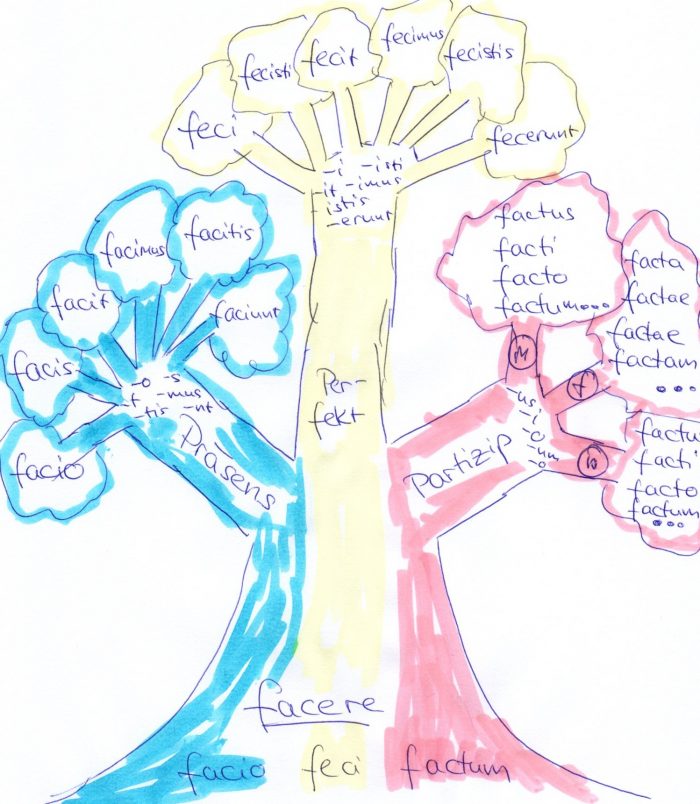 fecit
fecimus
fecisti
fecistis
feci
fecerunt
-i -isti
it -imus
istis
-erunt
facimus
facitis
facit
faciunt
facis
facio
-o -s
-t -mus
-tis -nt
Präsens
Per-
fekt
Partizip
factus
facti
facto
factum...
facta
factae
factae
factam
...
M
f
n
-us
-i
-o
-um
-o
factu
facti
facto
factum
...
facere
facio feci factum